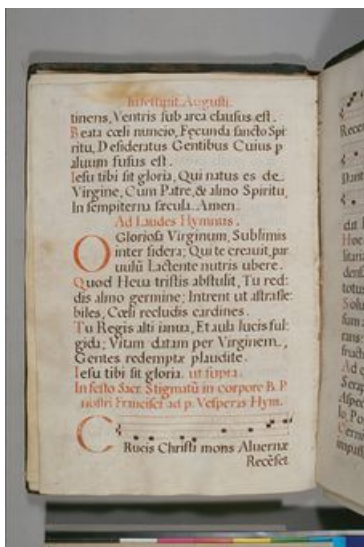 In festivit. Augusti.
tinens, Ventris sub arca clausus est.
Beata cœli nuncio, Fecunda sancto Spi-
ritu, Desideratus Gentibus Cuius p
aluum fusus est.
Iesu tibi sit gloria, Qui natus es de
Virgine, Cum Patre, & almo Spiritu,
In sempiterna sæcula. Amen.
Ad Laudes Hymnus.
O Gloriosa Virginum, Sublimis
inter sidera; Qui te creauit, par
uulũ Lactente nutris ubere.
Quod Heua tristis abstulit, Tu red:
dis almo germine; Intrent ut astra fle:
biles, Cœli recludis cardines.
Tu Regis alti ianua, Et aula lucis ful:
gida; Vitam datam per Virginem,
Gentes redemptæ plaudite.
Iesu tibi sit gloria. ut supra.
In festo Sacr. Stigmatũ in corpore B. P.
nostri Francisci ad p. Vesperas Hym.
CRucis Christi mons Aluernæ
Recẽset